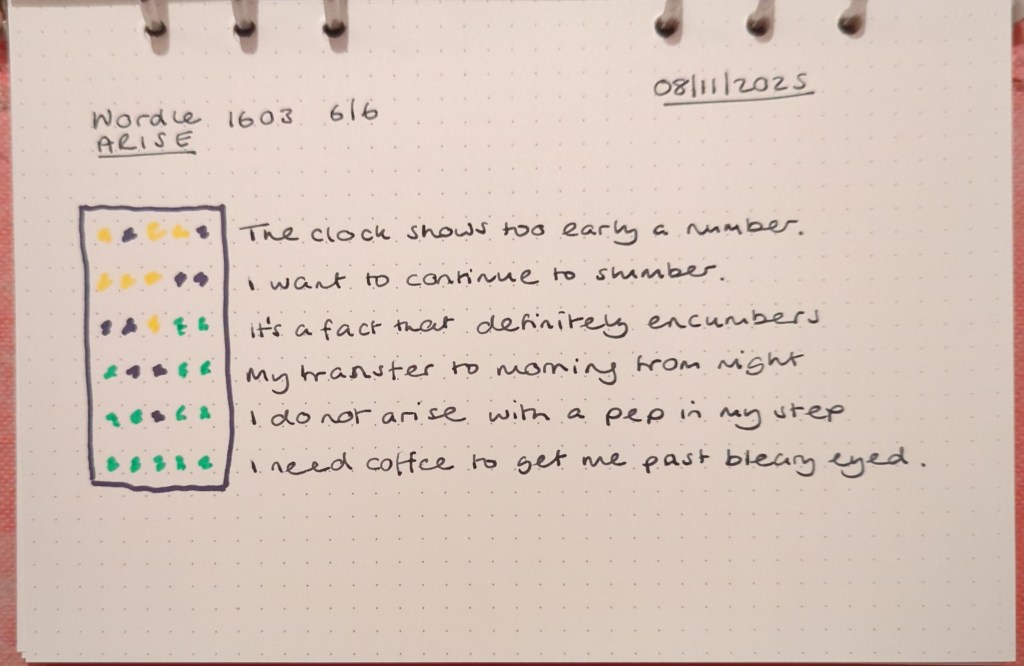 08/11/2025
Wordle 1603 6/6
ARISE
The clock shows too early a number.
I want to continue to slumber.
It's a fact that definitely encumbers
My transfer to morning from night
I do not arise with a pep in my step
I need coffee to get me past bleary eyed.